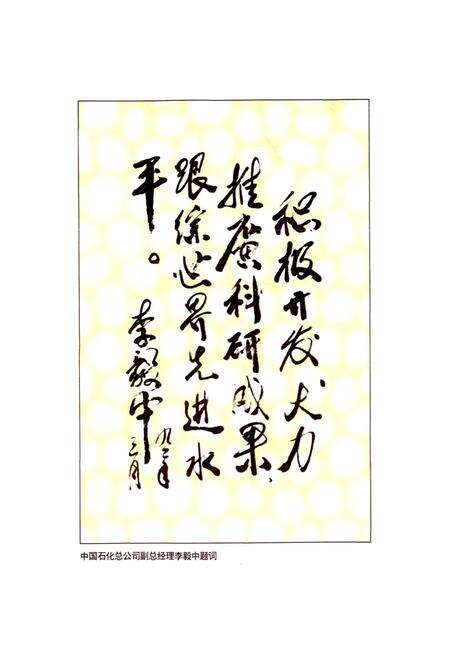 积极开发大力
推廣科研成果
跟综世界先进水
平。
李毅中
九二年
三月
中国石化总公司副总经理李毅中题词